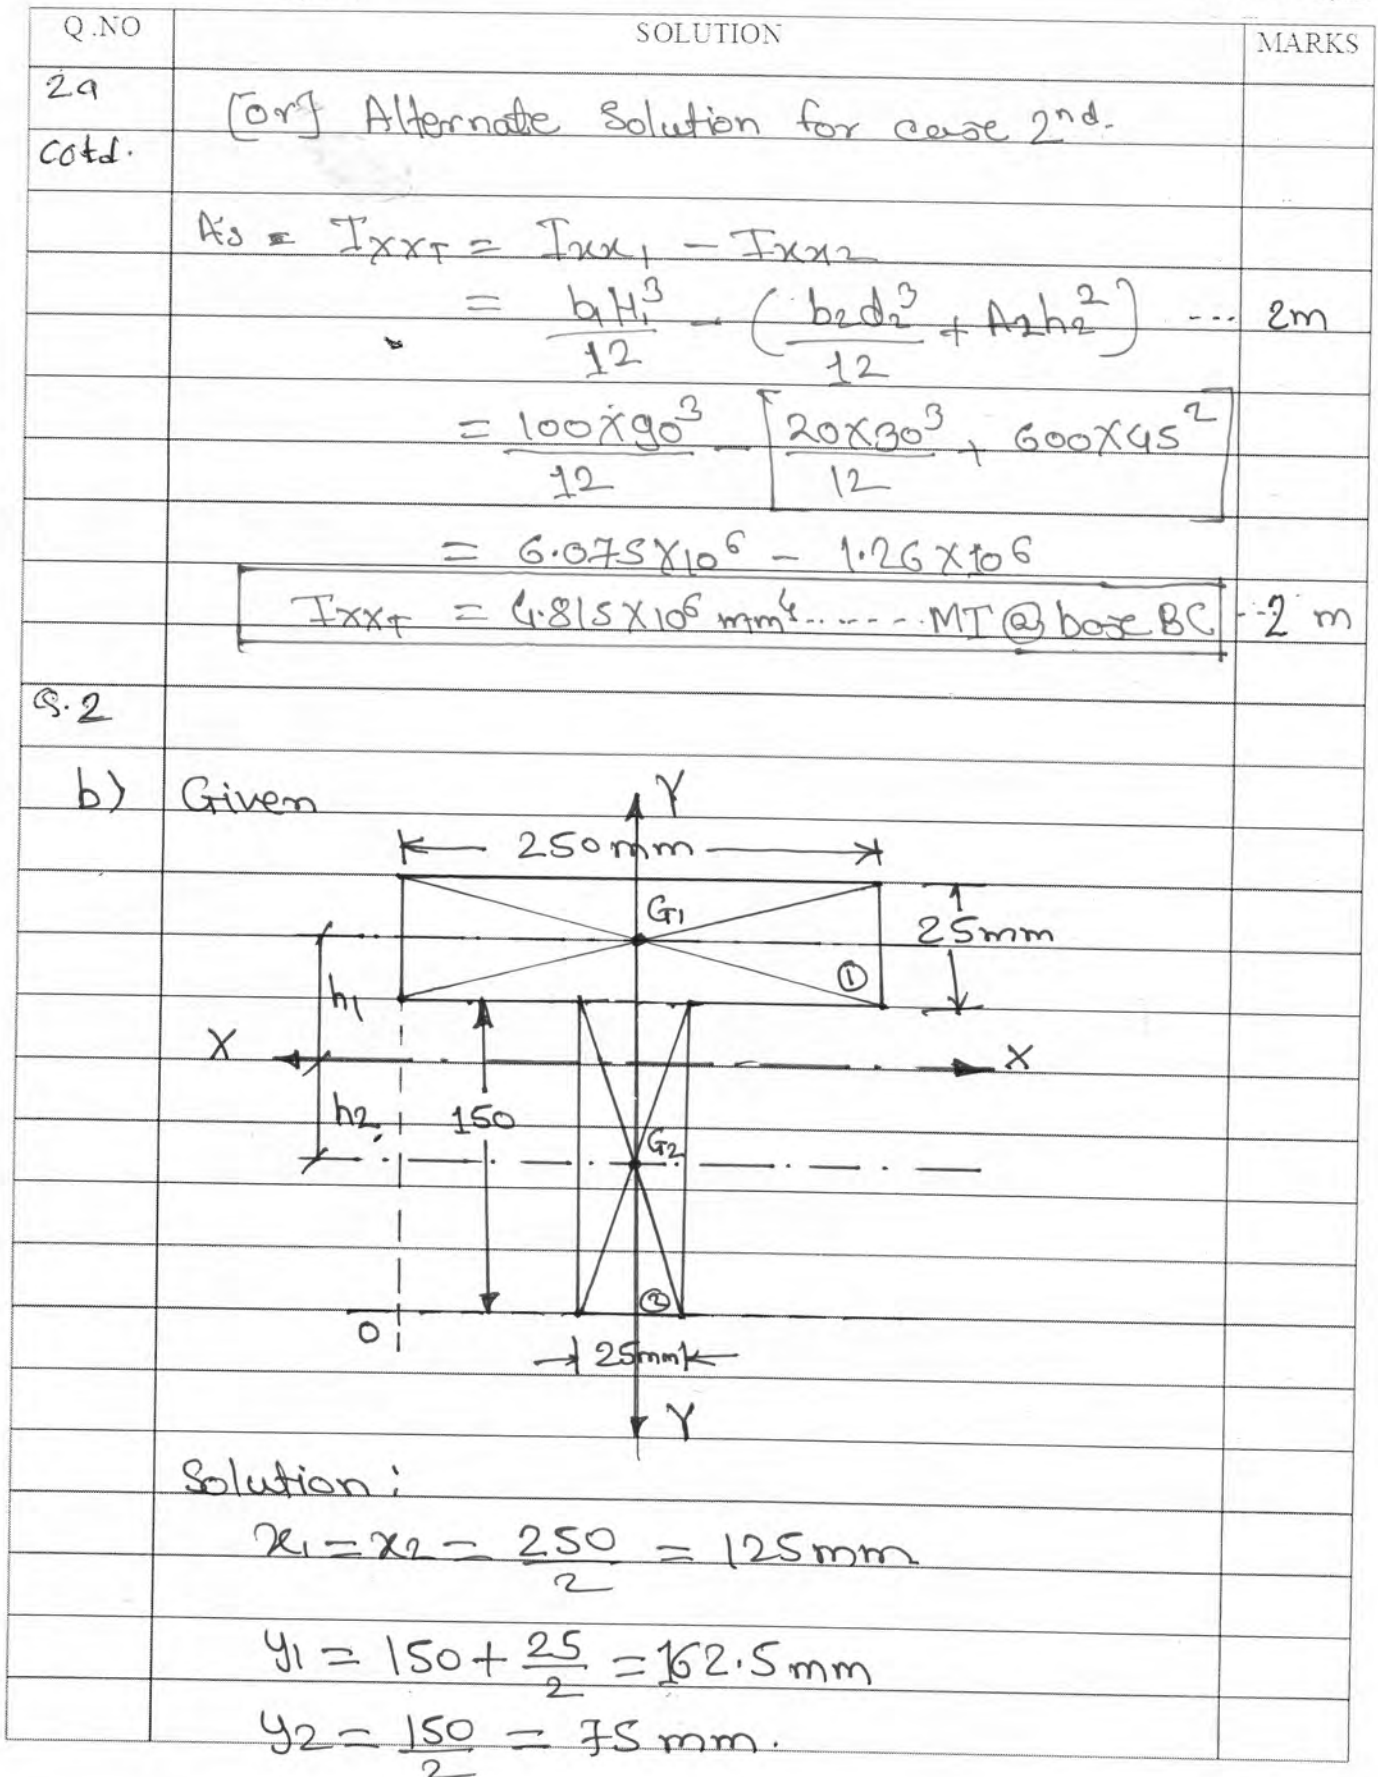 Q.NO SOLUTION MARKS
2a [or] Alternate Solution for case 2nd.
cotd.
As = IXXT = Ixx1 - Ixx2
= b1H1³/12 - (b2d2³/12 + A2h2²) --- 2m
= 100X90³/12 - [20X30³/12 + 600X45²]
= 6.075X10⁶ - 1.26X10⁶
IXXT = 4.815X10⁶ mm⁴ ....... MI @ base BC --2 m
Q.2
b) Given
Y
250mm
G1
25mm
①
h1
X X
h2 150
G2
②
O
25mm
Y
Solution:
x1 = x2 = 250/2 = 125mm
y1 = 150 + 25/2 = 162.5mm
y2 = 150/2 = 75mm.